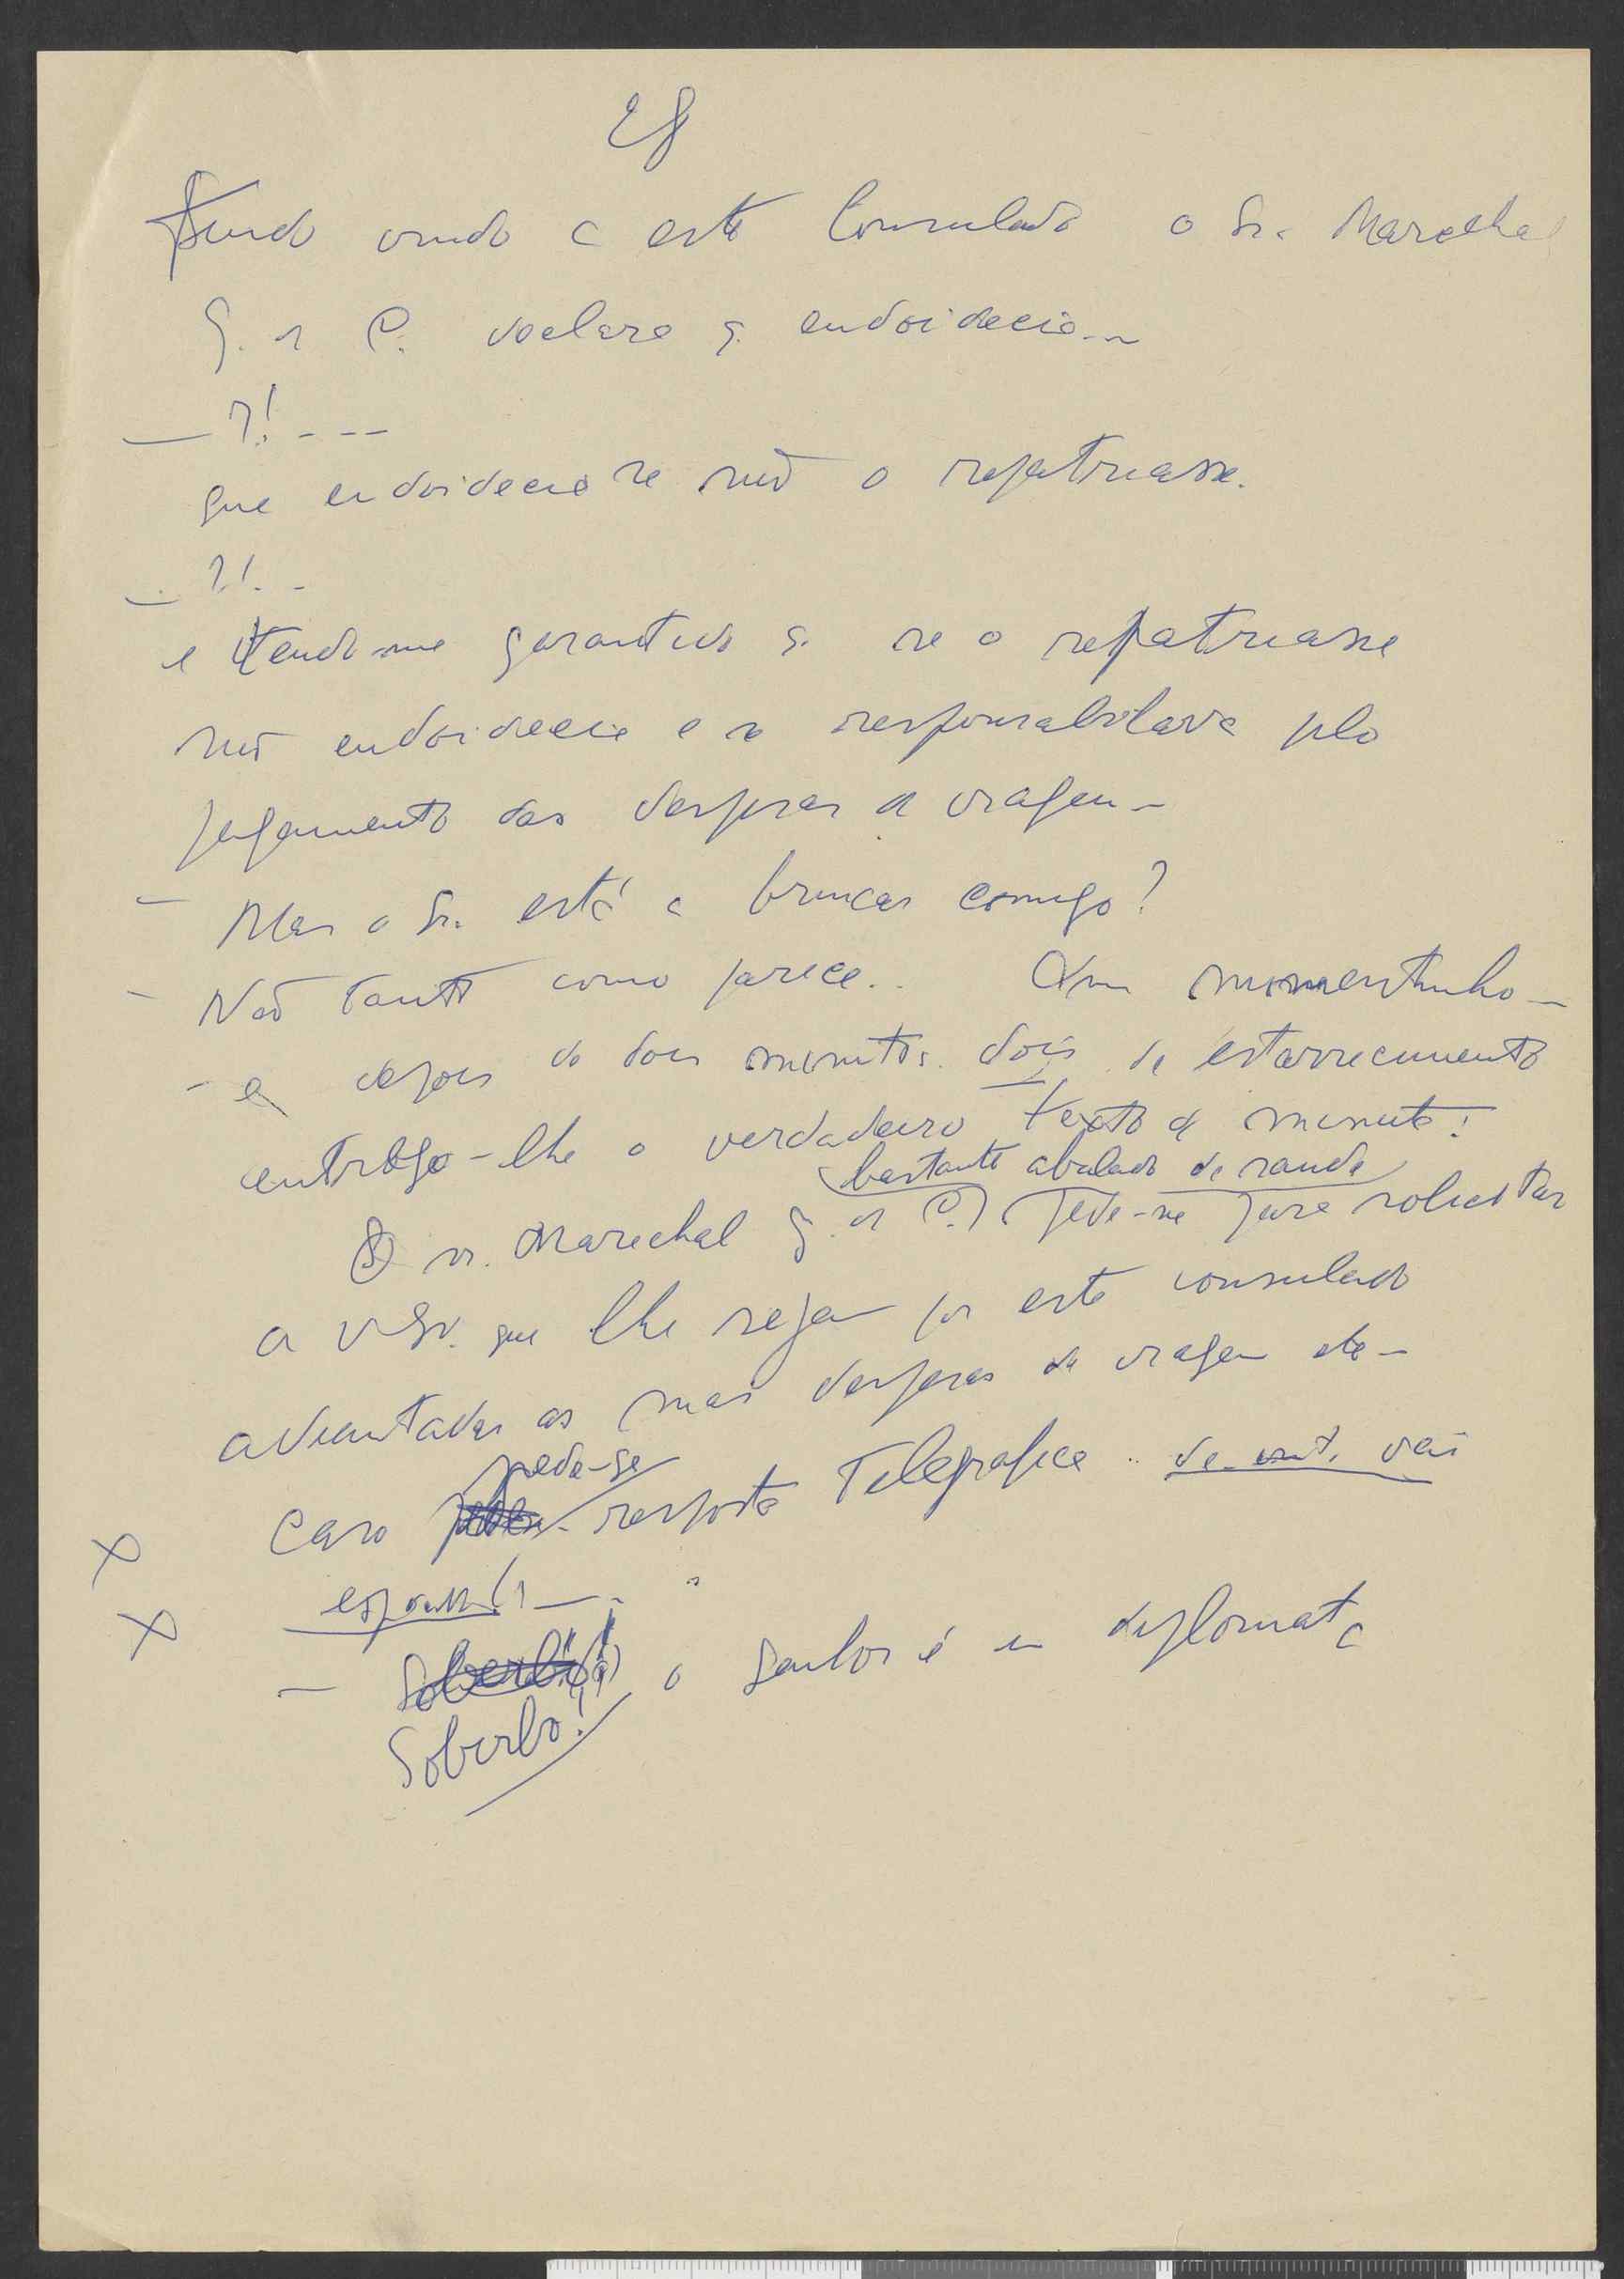 28
Tendo vindo a este Consulado o Sr. Marechal
G. da C. declara q. endoidecia...
— ?! ---
que endoidecia se não o repatriasse.
— ?! ..
e tendo-me garantido q. se o repatriasse
não endoidecia e se responsabilizava pelo
pagamento das despesas de viagem —
— Mas o Sr. está a brincar comigo?
— Não tanto como parece.. Um momentinho —
— e depois de dois minutos dois de estarrecimento
entrego-lhe o verdadeiro texto da minuta:
bastante abalado de saude
O sr. Marechal G. da C.) pede-me para solicitar
a V. que lhe sejam por este consulado
adiantadas as suas despesas de viagem etc —
pede-se
Caso resposta telegrafica ..
— o senhor é um diplomata
Soberbo!